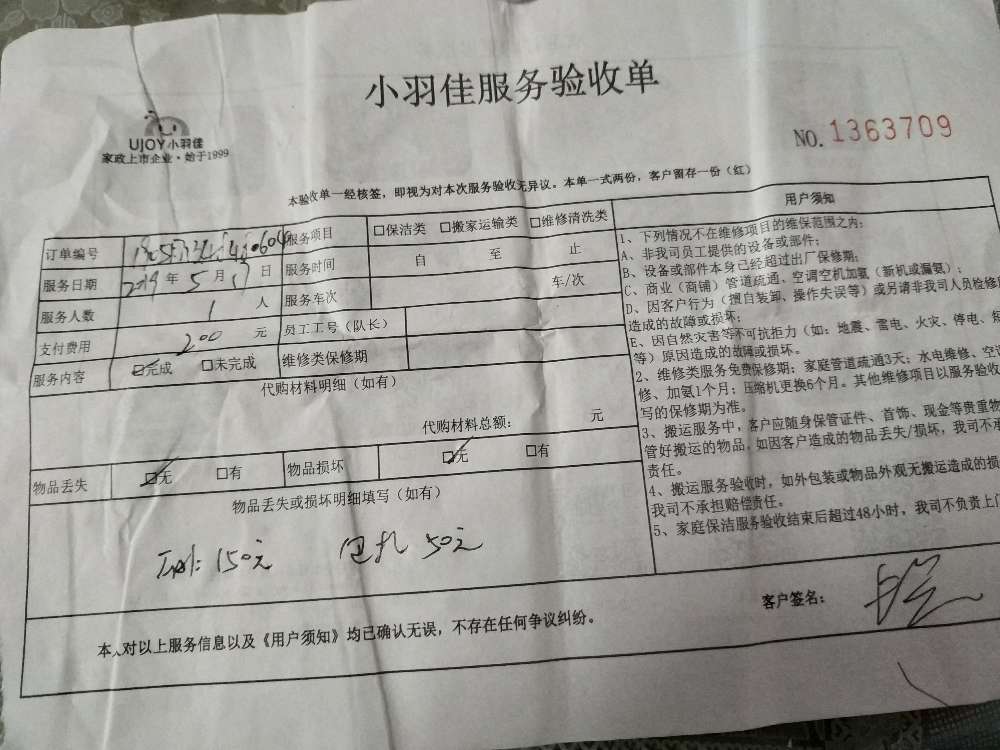 小羽佳服务验收单
UJOY小羽佳
家政上市企业·始于1999
NO.1363709
本验收单一经核签，即视为对本次服务验收无异议。本单一式两份，客户留存一份（红）
订单编号
服务项目 □保洁类 □搬家运输类 □维修清洗类
服务日期 2019年5月17日 服务时间 自 至 止
服务人数 1 人 服务车次 车/次
支付费用 200 元 员工工号（队长）
服务内容 ☑完成 □未完成 维修类保修期
代购材料明细（如有）
代购材料总额： 元
物品丢失 ☑无 □有 物品损坏 ☑无 □有
物品丢失或损坏明细填写（如有）
150元 包扎 50元
用户须知
1、下列情况不在维修项目的维保范围之内：
A、非我司员工提供的设备或部件；
B、设备或部件本身已经超过出厂保修期；
C、商业（商铺）管道疏通、空调空机加氨（新机或漏氨）；
D、因客户行为（擅自装卸、操作失误等）或另请非我司人员检修
造成的故障或损坏；
E、因自然灾害等不可抗拒力（如：地震、雷电、火灾、停电、
等）原因造成的故障或损坏。
2、维修类服务免费保修期：家庭管道疏通3天；水电维修、空
修、加氨1个月；压缩机更换6个月。其他维修项目以服务验收
写的保修期为准。
3、搬运服务中，客户应随身保管证件、首饰、现金等贵重物
管好搬运的物品，如因客户造成的物品丢失/损坏，我司不承
责任。
4、搬运服务验收时，如外包装或物品外观无搬运造成的损
我司不承担赔偿责任。
5、家庭保洁服务验收结束后超过48小时，我司不负责上门
客户签名：
本人对以上服务信息以及《用户须知》均已确认无误，不存在任何争议纠纷。